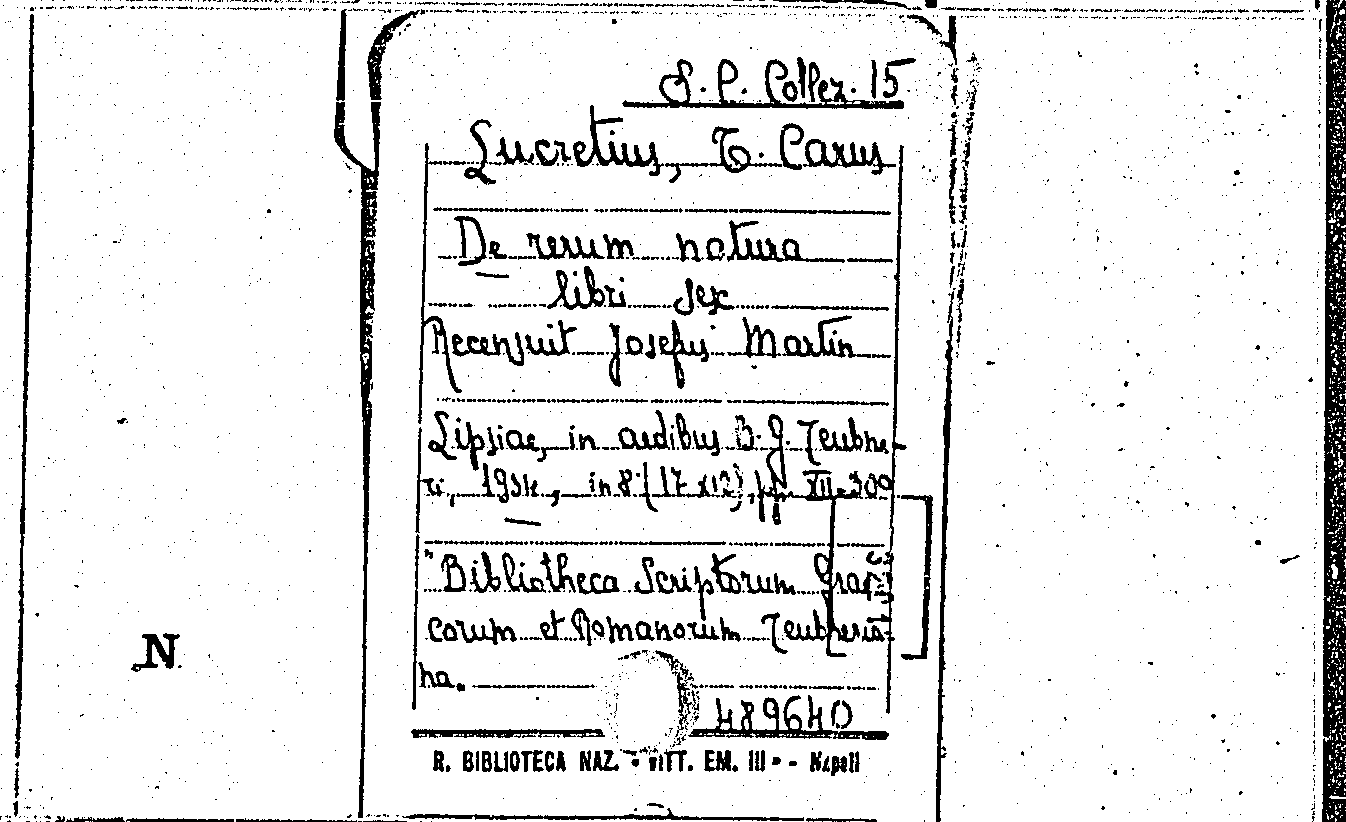 S. P. Collez. 15
Lucretius, T. Carus
De rerum natura
libri sex
Recensuit Josephus Martin
Lipsiae, in aedibus B. G. Teubne-
ri, 1934, in 8° (17 x 12), pp. XII-300
"Bibliotheca Scriptorum Grae
corum et Romanorum Teubneria-
na.
489640
N
R. BIBLIOTECA NAZ. - VITT. EM. III - - Napoli